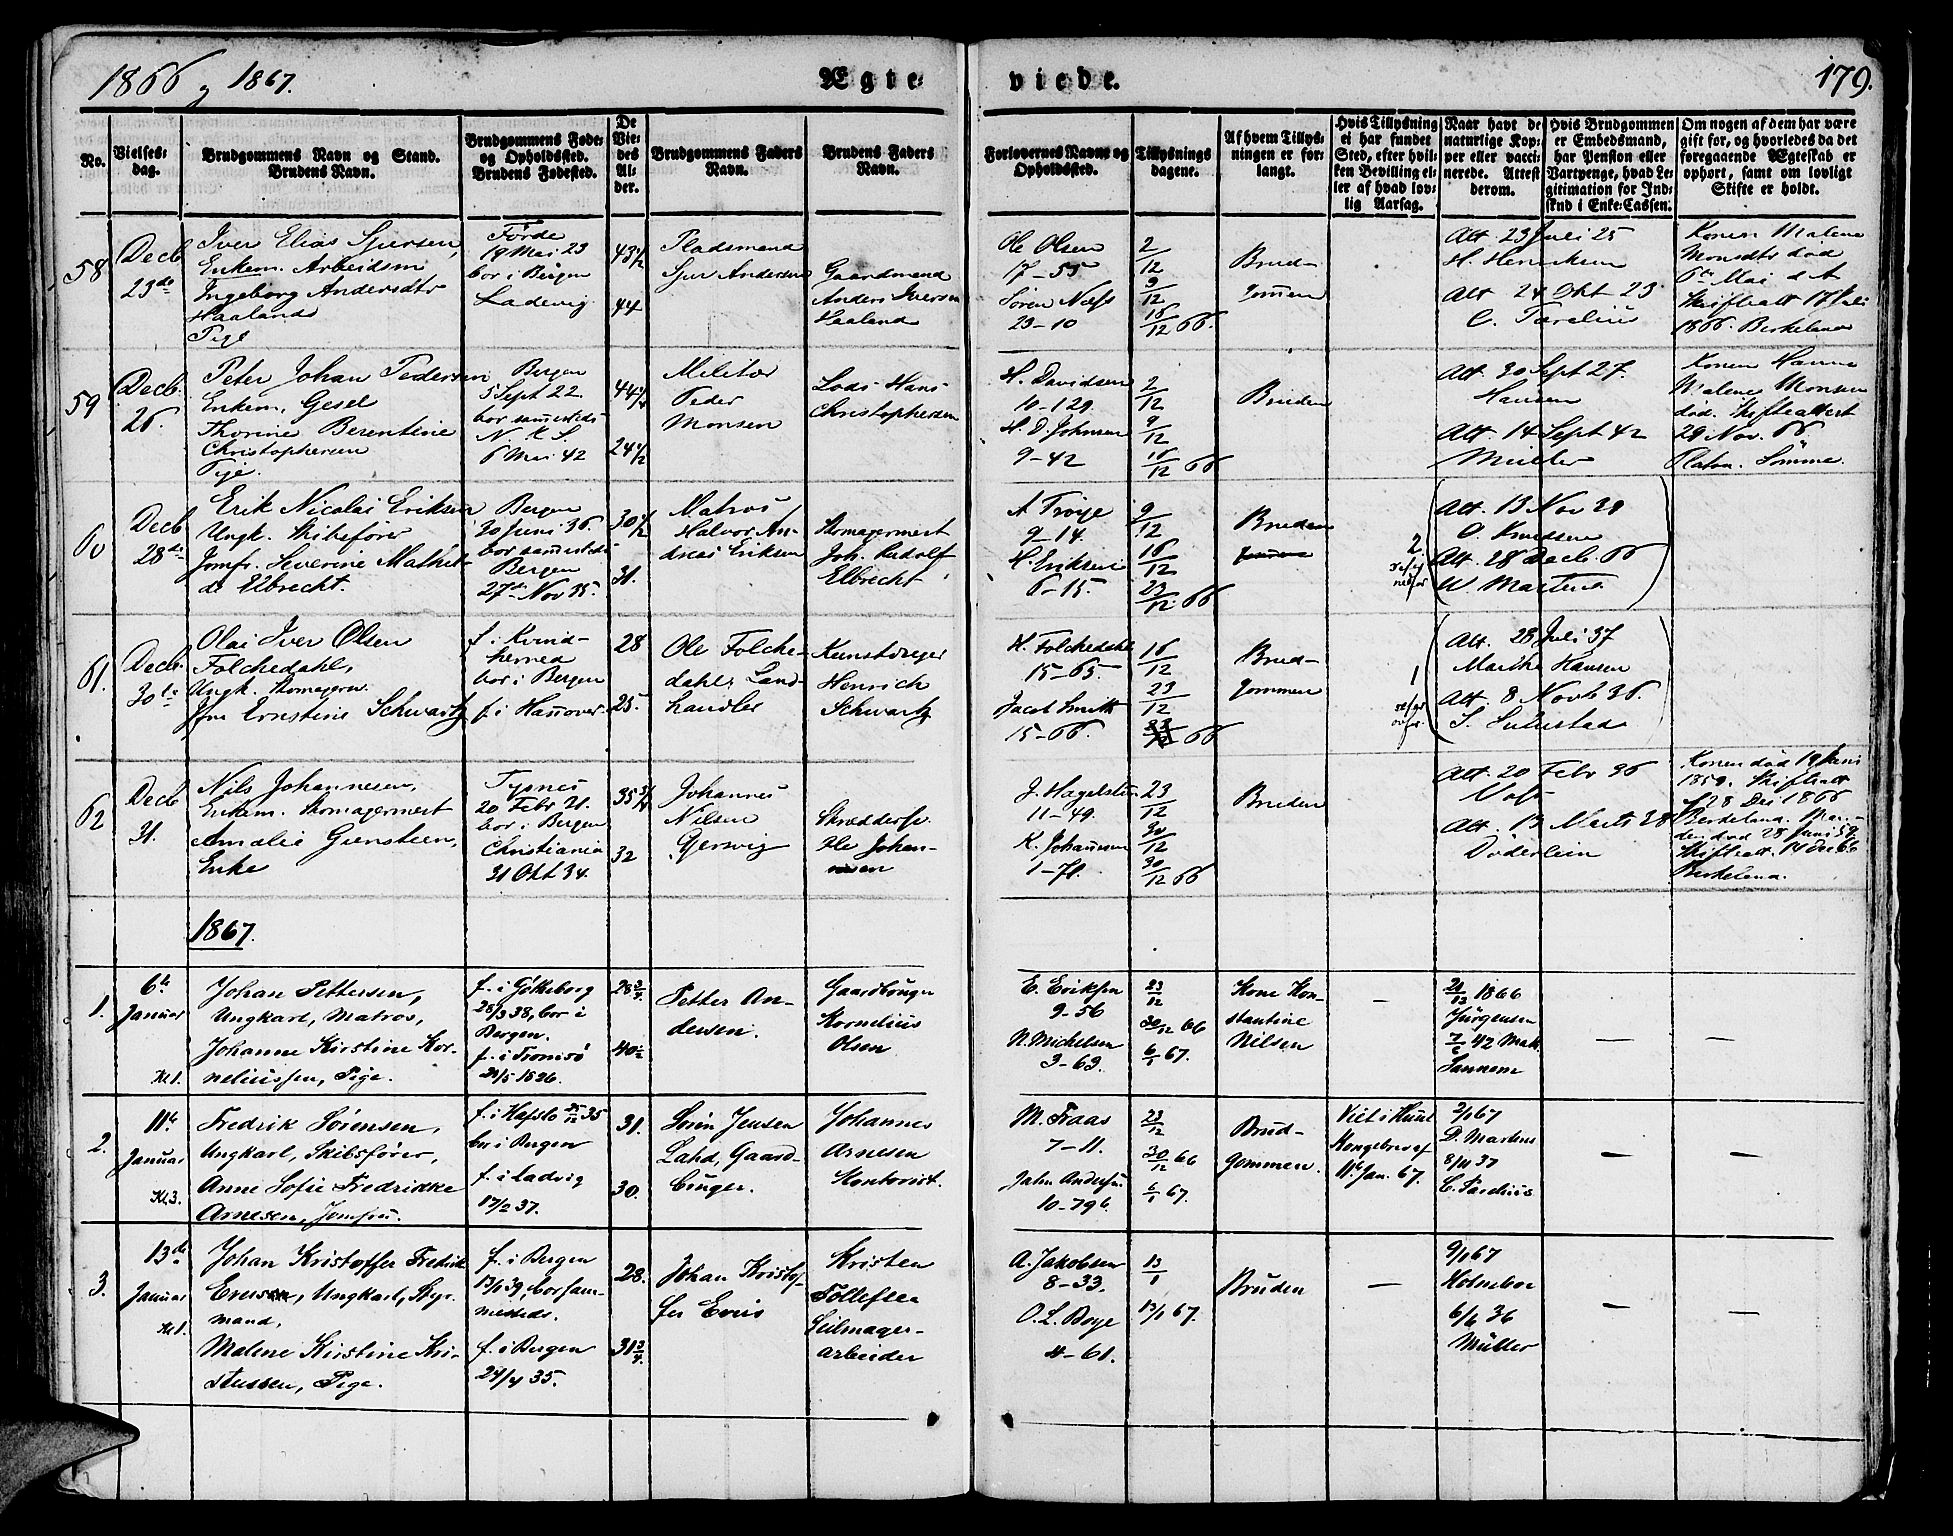 1866 og 1867.
Ægte
viede.
179.
No.
Vielses-
dag.
Brudgommens Navn og Stand.
Brudens Navn.
Brudgommens Føde-
og Opholdssted.
Brudens Fødested.
De
Vie-
des
Al-
der.
Brudgommens Faders
Navn.
Brudens Faders
Navn.
Forlovernes Navne og
Opholdssted.
Tillysnings
dagene.
Af hvem Tillys-
ningen er for-
langt.
Hvis Tillysning
ei har fundet
Sted, efter hvil-
ken Bevilling el-
ler af hvad lov-
lig Aarsag.
Naar havt de
naturlige Kop-
per eller vacci-
nerede. Attest
derom.
Hvis Brudgommen
er Embedsmand,
har Pension eller
Vartpenge, hvad Le-
gitimation for Ind-
skud i Enke-Cassen.
Om nogen af dem har være
gift for, og hvorledes da det
foregaaende Ægteskab er
ophort, samt om lovligt
Skifte er holdt.
58
Decb
23de
Iver Elias Sjursen,
Enkem. Arbeidsm
Ingeborg Andersdtr
Haaland
Pige
Førde
19 Mai 23
bor i Bergen
Ladevig
43 1/2
44
Pladsmand
Sjur Andersen
Gaardmand
Anders Iversen
Haaland
Ole Olsen
17-55
Søren Næss
23-10
2/12
9/12
16/12 66.
Brud-
gommen
Att. 23 Juli 25
H. Henriksen
Att 24 Okt 23
C.
Konen Malene
Monsdtr død
6te Mai d A
Skifteatt 17 Juli
1866. Berkeland
59
Decb.
26.
Peter Johan Pedersen
Enkem. Gesel
Thorine Berentine
Christophersen
Pige.
Bergen
5 Sept 22
bor sammesteds
N. K. S.
6 Mai 42
44 1/4
24 1/2
Militær
Peder
Monsen
Lods Hans
Christophersen
H. Davidsen
10-129.
H. D. Johnsen
9-42
2/12
9/12
16/12 66
Bruden
Att. 30 Sept 27.
Hansen
Att. 14 Sept 42
Müller
Konen Hanne
Malene Monsen
død. Skifteattest
29 Nov. 66
Sømme.
60
Decb
28de
Erik Nicolai Eriksen
Ungk. Skibsfører
Jomfr. Severine Mathil-
de Elbrecht.
Bergen
20 Juni 36
bor sammesteds
Bergen
27de Nov 35.
30 1/2
31.
Matros
Halvor An-
dreas Eriksen
Skomagermest
Joh. Rudolf
Elbrecht
A Troye
9-14.
H. Eriksen
6-15.
9/12
16/12
23/12 66
Bruden
2.
Att. 13 Nov 29
O Knudsen
Att. 28 Decb. 66
W Martens
61.
Decb.
30te
Olai Iver Olsen
Folchedahl,
Ungk. Skomagersv.
Jfru Ernstine Schwartz
f. i Kvind-
herred
bor i Bergen
f. i Hanover.
28
25.
Ole Folche-
dahl, Land-
handler
Kunstdreyer
Henrich
Schwartz
H. Folchedahl
15-65.
Jacob Smith
15-66.
16/12
23/12
66
Brud-
gommen
1
Att. 28 Juli 37
Marthe Hansen
Att. 8 Novb 36.
S.
62
Decb
31.
Nils Johannesen,
Enkem. Skomagermest
Amalie Gunsteen,
Enke
Tysnes
20 Febr 21.
bor i Bergen
Christiania
31 Okt 34.
35 3/4
32
Johannes
Nilsen
Gjersvig
Skreddersv.
Ole Johan-
nesen
J. Hagelsteen
11-49.
K. Johannesen
1-71.
23/12
30/12
30/12 66
Bruden
Att. 20 Febr 36
Voss
Att. 13 Marts 28
Døderlein
Konen død 19 Juni
1859. Skifteatt
28 Dec 1866
Berkeland. Man-
den død 28 Juni 59.
Skifteatt. 14 Dec 66
Berkeland.
1867.
1.
6te
Januar
Kl 1.
Johan Pettersen,
Ungkarl, Matros,
Johanne Kirstine Kor-
neliussen, Pige.
f. i Gøtheborg
28/3 38, bor i
Bergen.
f. i Tromsø
21/5 1826.
28 3/4.
40 1/2
Petter An-
dersen.
Gaardbruger
Kornelius
Olsen
E. Eriksen
9-56
N. Michelsen
3-63.
23/12
30/12 66
6/1 67.
Kone Kon-
stantine
Nilsen
—
21/12 1866
Jürgensen
7/6 42 Mak.
Sannem
—
—
2.
11te
Januar
Kl 3.
Fredrik Sørensen,
Ungkarl, Skibsfører,
Anne Sofie Fredrikke
Arnesen, Jomfru.
f. i Hafslo 25/12 35
bor i Bergen
f. i Ladvig
17/2 37.
31.
30.
Sørin Jensen
Lahd, Gaard-
bruger.
Johannes
Arnesen
Kontorist.
M. Traas
7-11.
Jahn Andersen
10-796
23/12
30/12 66
6/1 67.
Brud-
gommen.
Viet i Huset
Kongebrev af
11te Jan. 67.
2/1 67
D. Martens
8/11 37
C.
—
—
3.
13de
Januar
Kl 1.
Johan Kristoffer Fredrik
Evensen, Ungkarl, Styr-
mand,
Malene Kirstine Kri-
stensen, Pige.
f. i Bergen
13/1 39, bor sam-
mesteds.
f. i Bergen
24/4 35.
28.
31 3/4.
Johan Kristof-
fer Evers
Kristen
Tollefsen
Seilmager-
arbeider
A. Jakobsen
8-33.
O. L. Boye
4-61.
13/1
13/1 67.
Bruden
—
9/1 67
Holmboe
6/6 36
Müller
—
—